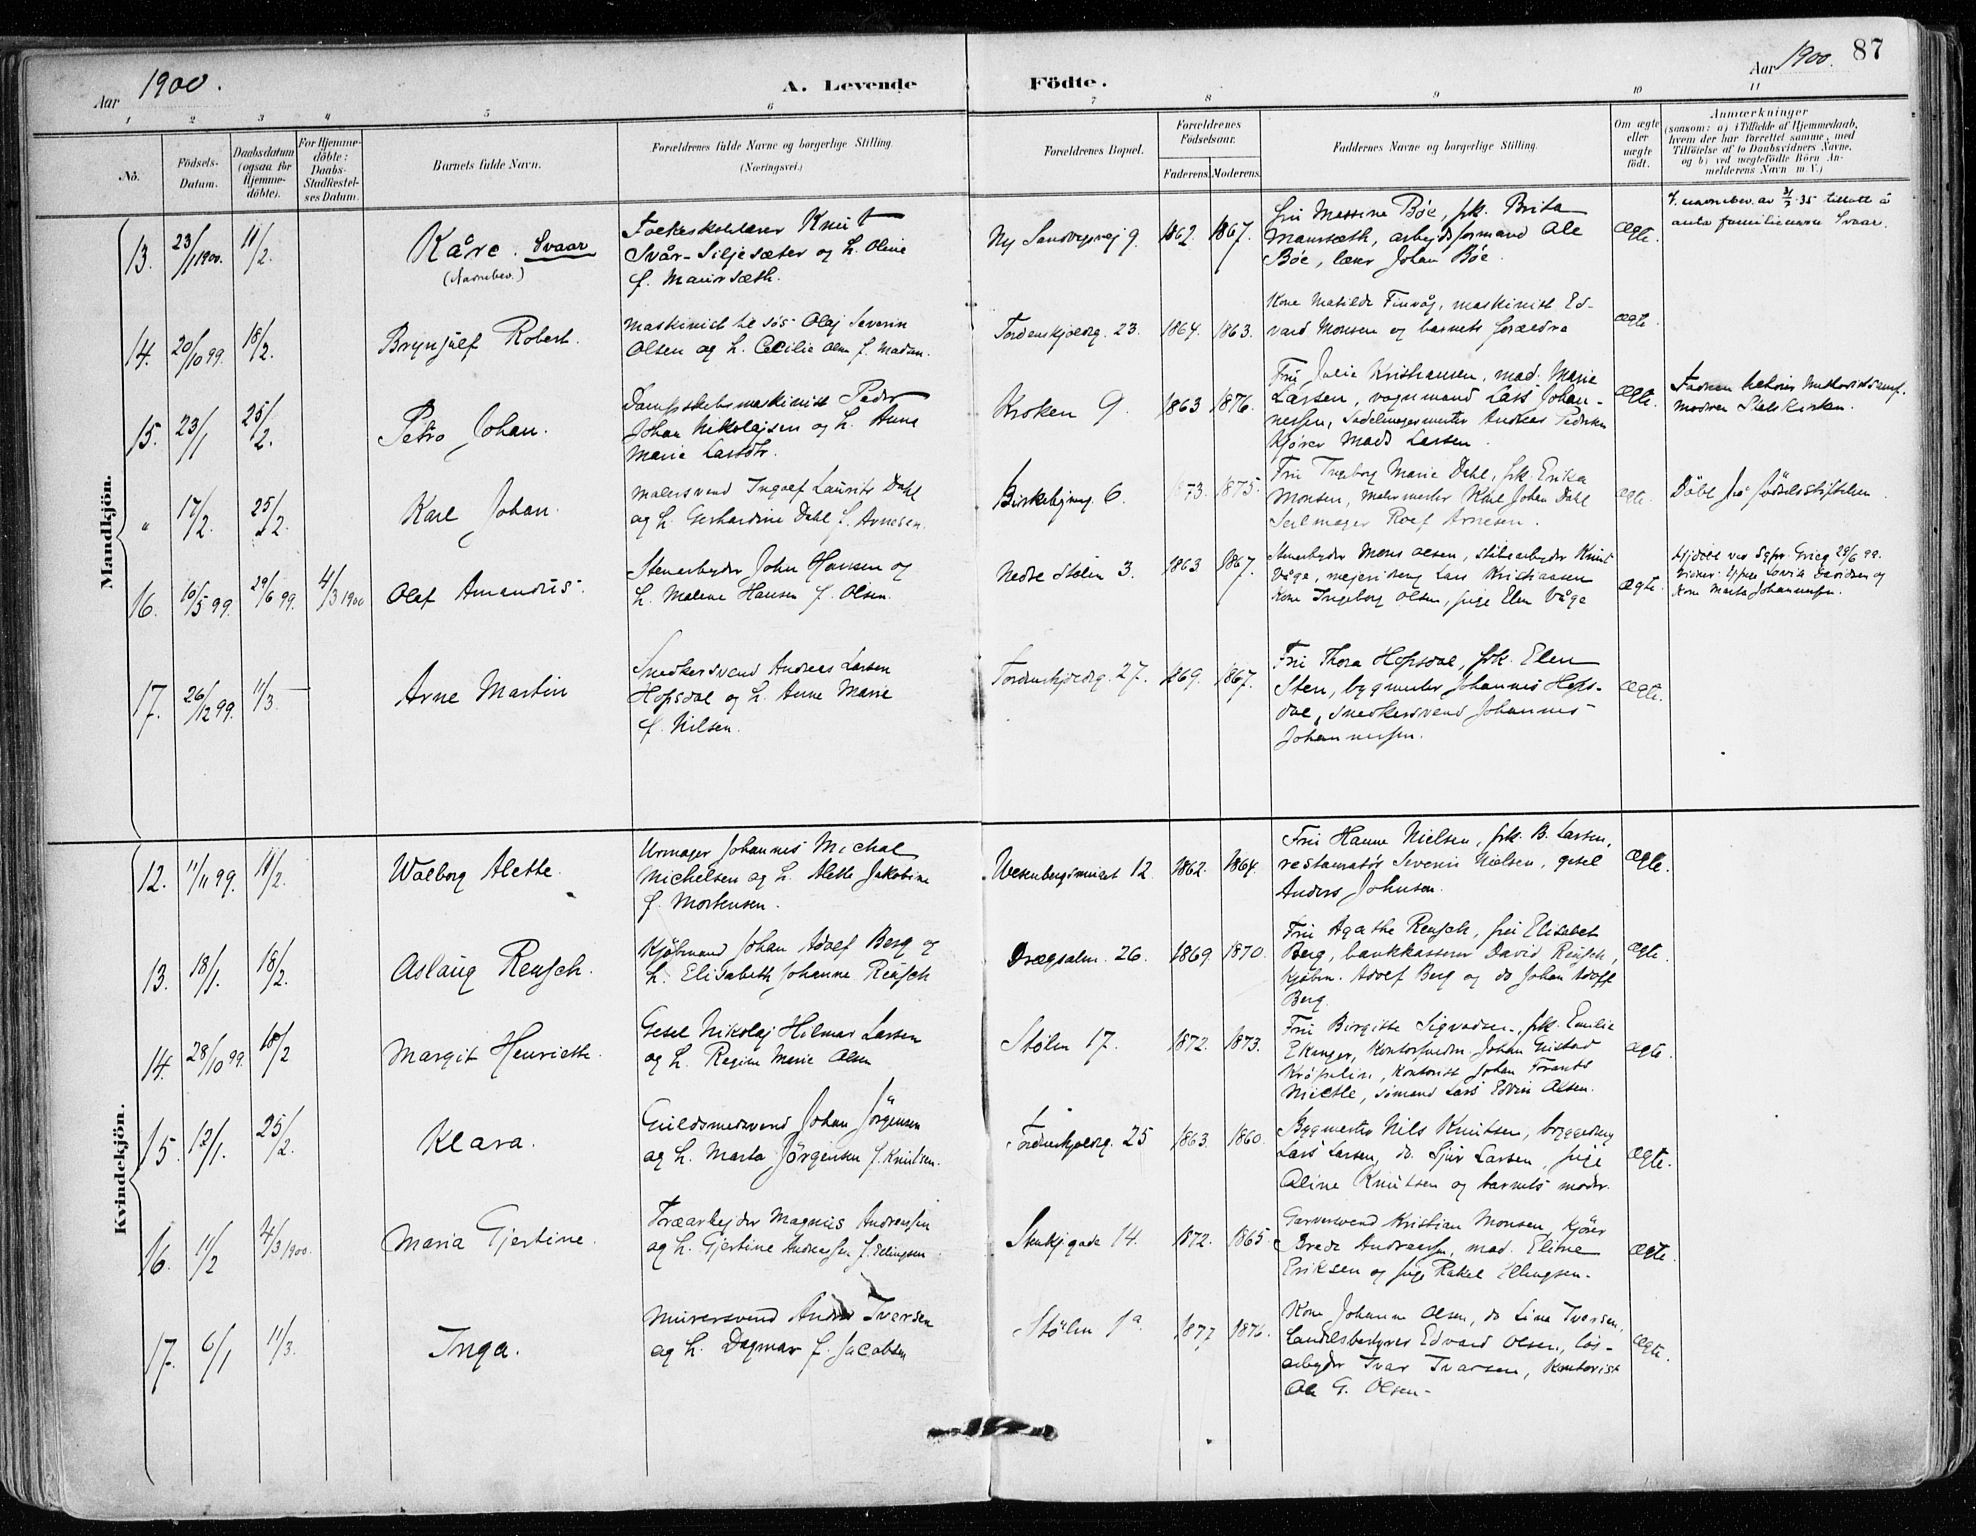 Aar 1900.
A. Levende
Födte.
Aar 1900. 87
1 2 3 4 5 6 7 8 9 10 11
No.
Födsels-
Datum.
Daabsdatum
(ogsaa for
Hjemme-
döbte).
For Hjemme-
döbte:
Daabs-
Stadfæstel-
ses Datum.
Barnets fulde Navn.
Forældrenes fulde Navne og borgerlige Stilling
(Næringsvei.)
Forældrenes Bopæl.
Forældrenes
Födselsaar.
Faderens. Moderens.
Faddernes Navne og borgerlige Stilling.
Om ægte
eller
uægte
födt.
Anmærkninger
(saasom: a) i Tilfælde af Hjemmedaab,
hvem der har forrettet samme, med
Tilföielse af to Daabsvidners Navne,
og b) ved uegtefödte Börn An-
melderens Navn m. V.)
Mandkjön.
13. 23/1 1900. 11/2
Kåre. Svaar
(Navnebev.)
Folkeskolelærer Knut
Svår-Siljesæter og h. Oline
f. Maursæth.
Ny Sandvigsvej 9. 1862. 1867.
Fru Massine Böe, frk. Brita
Maursæth, arbejdsformand Ole
Böe, lærer Johan Böe.
Ægte.
navnebev. av 3/7 35 tillatt å
anta familienavn Svaar.
14. 20/10 99. 18/2.
Brynjulf Robert.
Maskinist til søs Olaf Severin
Olsen og h. Cecilie Olsen f. Madsen.
Tordenskjoldg. 23. 1864. 1863.
Kone Matilde Finvåg, maskinist Ed-
vard Monsen og barnets forældre
Ægte.
15. 23/1 25/2.
Petro Johan.
Dampskibsmaskinist Peder
Johan Nikolajsen og h. Anna
Marie Larsdtr.
Kroken 9. 1863 1876.
Fru Julie Kristiansen, mad. Marie
Larsen, vognmand Lars Johan-
nessen, Sadelmagermester Andreas Pedersen
kjører Mads Larsen.
Ægte.
Faderen tilhører Methodistsamf.
Modren Statskirken.
" 17/2. 25/2.
Karl Johan.
Malersvend Ingolf Laurits Dahl
og h. Gerhardine Dahl f. Arnesen.
Birkebeinerg. 6. 1873. 1875.
Fru Ingeborg Marie Dahl, frk. Erika
Monsen, malermester Karl Johan Dahl
Seilmager Rolf Arnesen.
Ægte.
Döbt på Födselsstiftelsen.
16. 16/5 99. 29/6 99. 4/3 1900
Olaf Amandus.
Stenarbejder John Hansen og
h. Malene Hansen f. Olsen.
Nedre Stølen 3. 1863 1867.
Stenarbejder Mons Olsen, stibsarbejder Knut
Våge, mejeribestyr Lars Kristiansen
Kone Ingeborg Olsen, pige Elen Våge
Ægte.
Hjdöbt ved Sgpr. Grieg 29/6 99.
Vidner: Lovise Davidsen og
Kone Marta Johannessen.
17. 26/12 99. 11/3
Arne Martin
Snedkersvend Andreas Larsen
Hopsdal og h. Anne Marie
f. Nilsen.
Tordenskjoldg. 27. 1869. 1867.
Fru Thora Hopsdal, frk. Elen
Sten, bygmester Johannes Hops-
dal, snedkersvend Johannes
Johannessen.
Ægte.
Kvindekjön.
12. 11/11 99. 11/2.
Walborg Alette.
Urmager Johannes Michal
Michelsen og h. Alette Jakobine
f. Mortensen.
Wesenbergsmuet 12. 1862. 1864.
Fru Hanne Nielsen, frk. B. Larsen,
restauratør Severin Nielsen, gesel
Anders Johnsen.
Ægte.
13. 18/1. 18/2.
Aslaug Reusch.
Kjøbmand Johan Adolf Berg og
h. Elisabeth Johanne Reusch
Drægsalm. 26. 1869. 1870.
Fru Agathe Reusch, fru Elisabet
Berg, bankkasserer David Reusch,
kjøbm. Adolf Berg og do Johan Adolf
Berg.
Ægte.
14. 28/10 99. 18/2
Margit Henriette.
Gesel Nikolaj Hilmar Larsen
og h. Regine Marie Olsen
Stølen 17. 1872. 1873.
Fru Birgitte Sigvadsen, frk. Emilie
Ekanger, Johan Gustav
Kröpelien, kontorist Johan Frants
Mielle, sömand Lars Edvin Olsen.
Ægte.
15. 12/1. 25/2.
Klara.
Guldsmedsvend Johan Jörgensen
og h. Marta Jörgensen f. Knutsen.
Tordenskjoldg. 25 1863. 1860.
Bygmester Nils Knutsen, bryggedreng
Lars Larsen, do. Sjur Larsen, pige
Oline Knutsen og barnets moder.
Ægte.
16. 11/2 4/3 1900.
Maria Gjertine.
Toraarbejder Magnus Andreassen
og h. Gjertine Andreassen f. Ellingsen
Stenkjgade 14. 1872. 1865.
Garversvend Kristian Monsen, kjører
Brede Andreassen, mad. Eline
Eriksen og pige Rakel Ellingsen.
Ægte.
17. 6/1 11/3.
Inga.
Murersvend Andreas Iversen
og h. Dagmar f. Jacobsen
Stølen 1a. 1877. 1876.
Kone Johanne Olsen, do Line Iversen,
Landelsbestyrer Edvard Olsen, løs-
arbejder Ivar Ivarsen, kontorist
Ole G. Olsen.
Ægte.